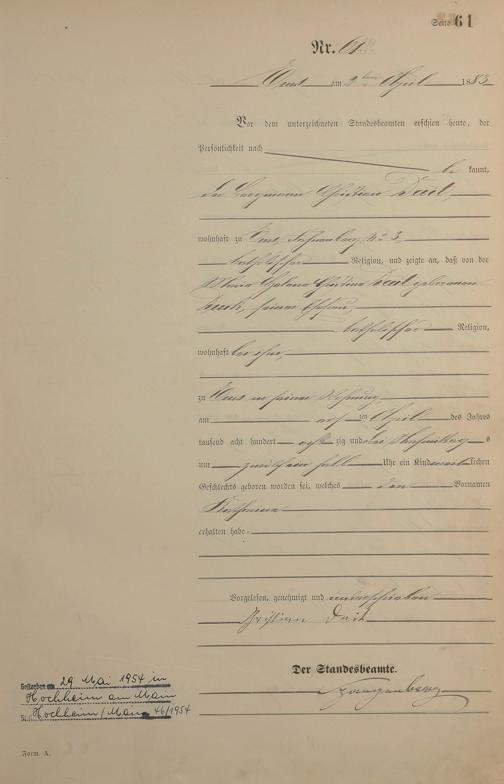 Seite 61
Nr. 61.
Ems am 2ten April 1883
Vor dem unterzeichneten Standesbeamten erschien heute, der
Persönlichkeit nach
be kannt,
der Bergmann Christian
wohnhaft zu Ems, No 3,
katholischer Religion, und zeigte an, daß von der
Maria Helena Christina geborenen
seiner Ehefrau,
katholischer Religion,
wohnhaft bei ihm,
zu Ems in seiner Wohnung
am ten April des Jahres
tausend acht hundert acht zig und drei Nachmittags
um zwölf ein halb Uhr ein Kind weib lichen
Geschlechts geboren worden sei, welches den Vornamen
Katharina
erhalten habe.
Vorgelesen, genehmigt und unterschrieben
Christian
Der Standesbeamte.
Gestorben am 29 Mai 1954 in
Hochheim am Main
St. A. Hochheim/Main 46/1954
Form. A.